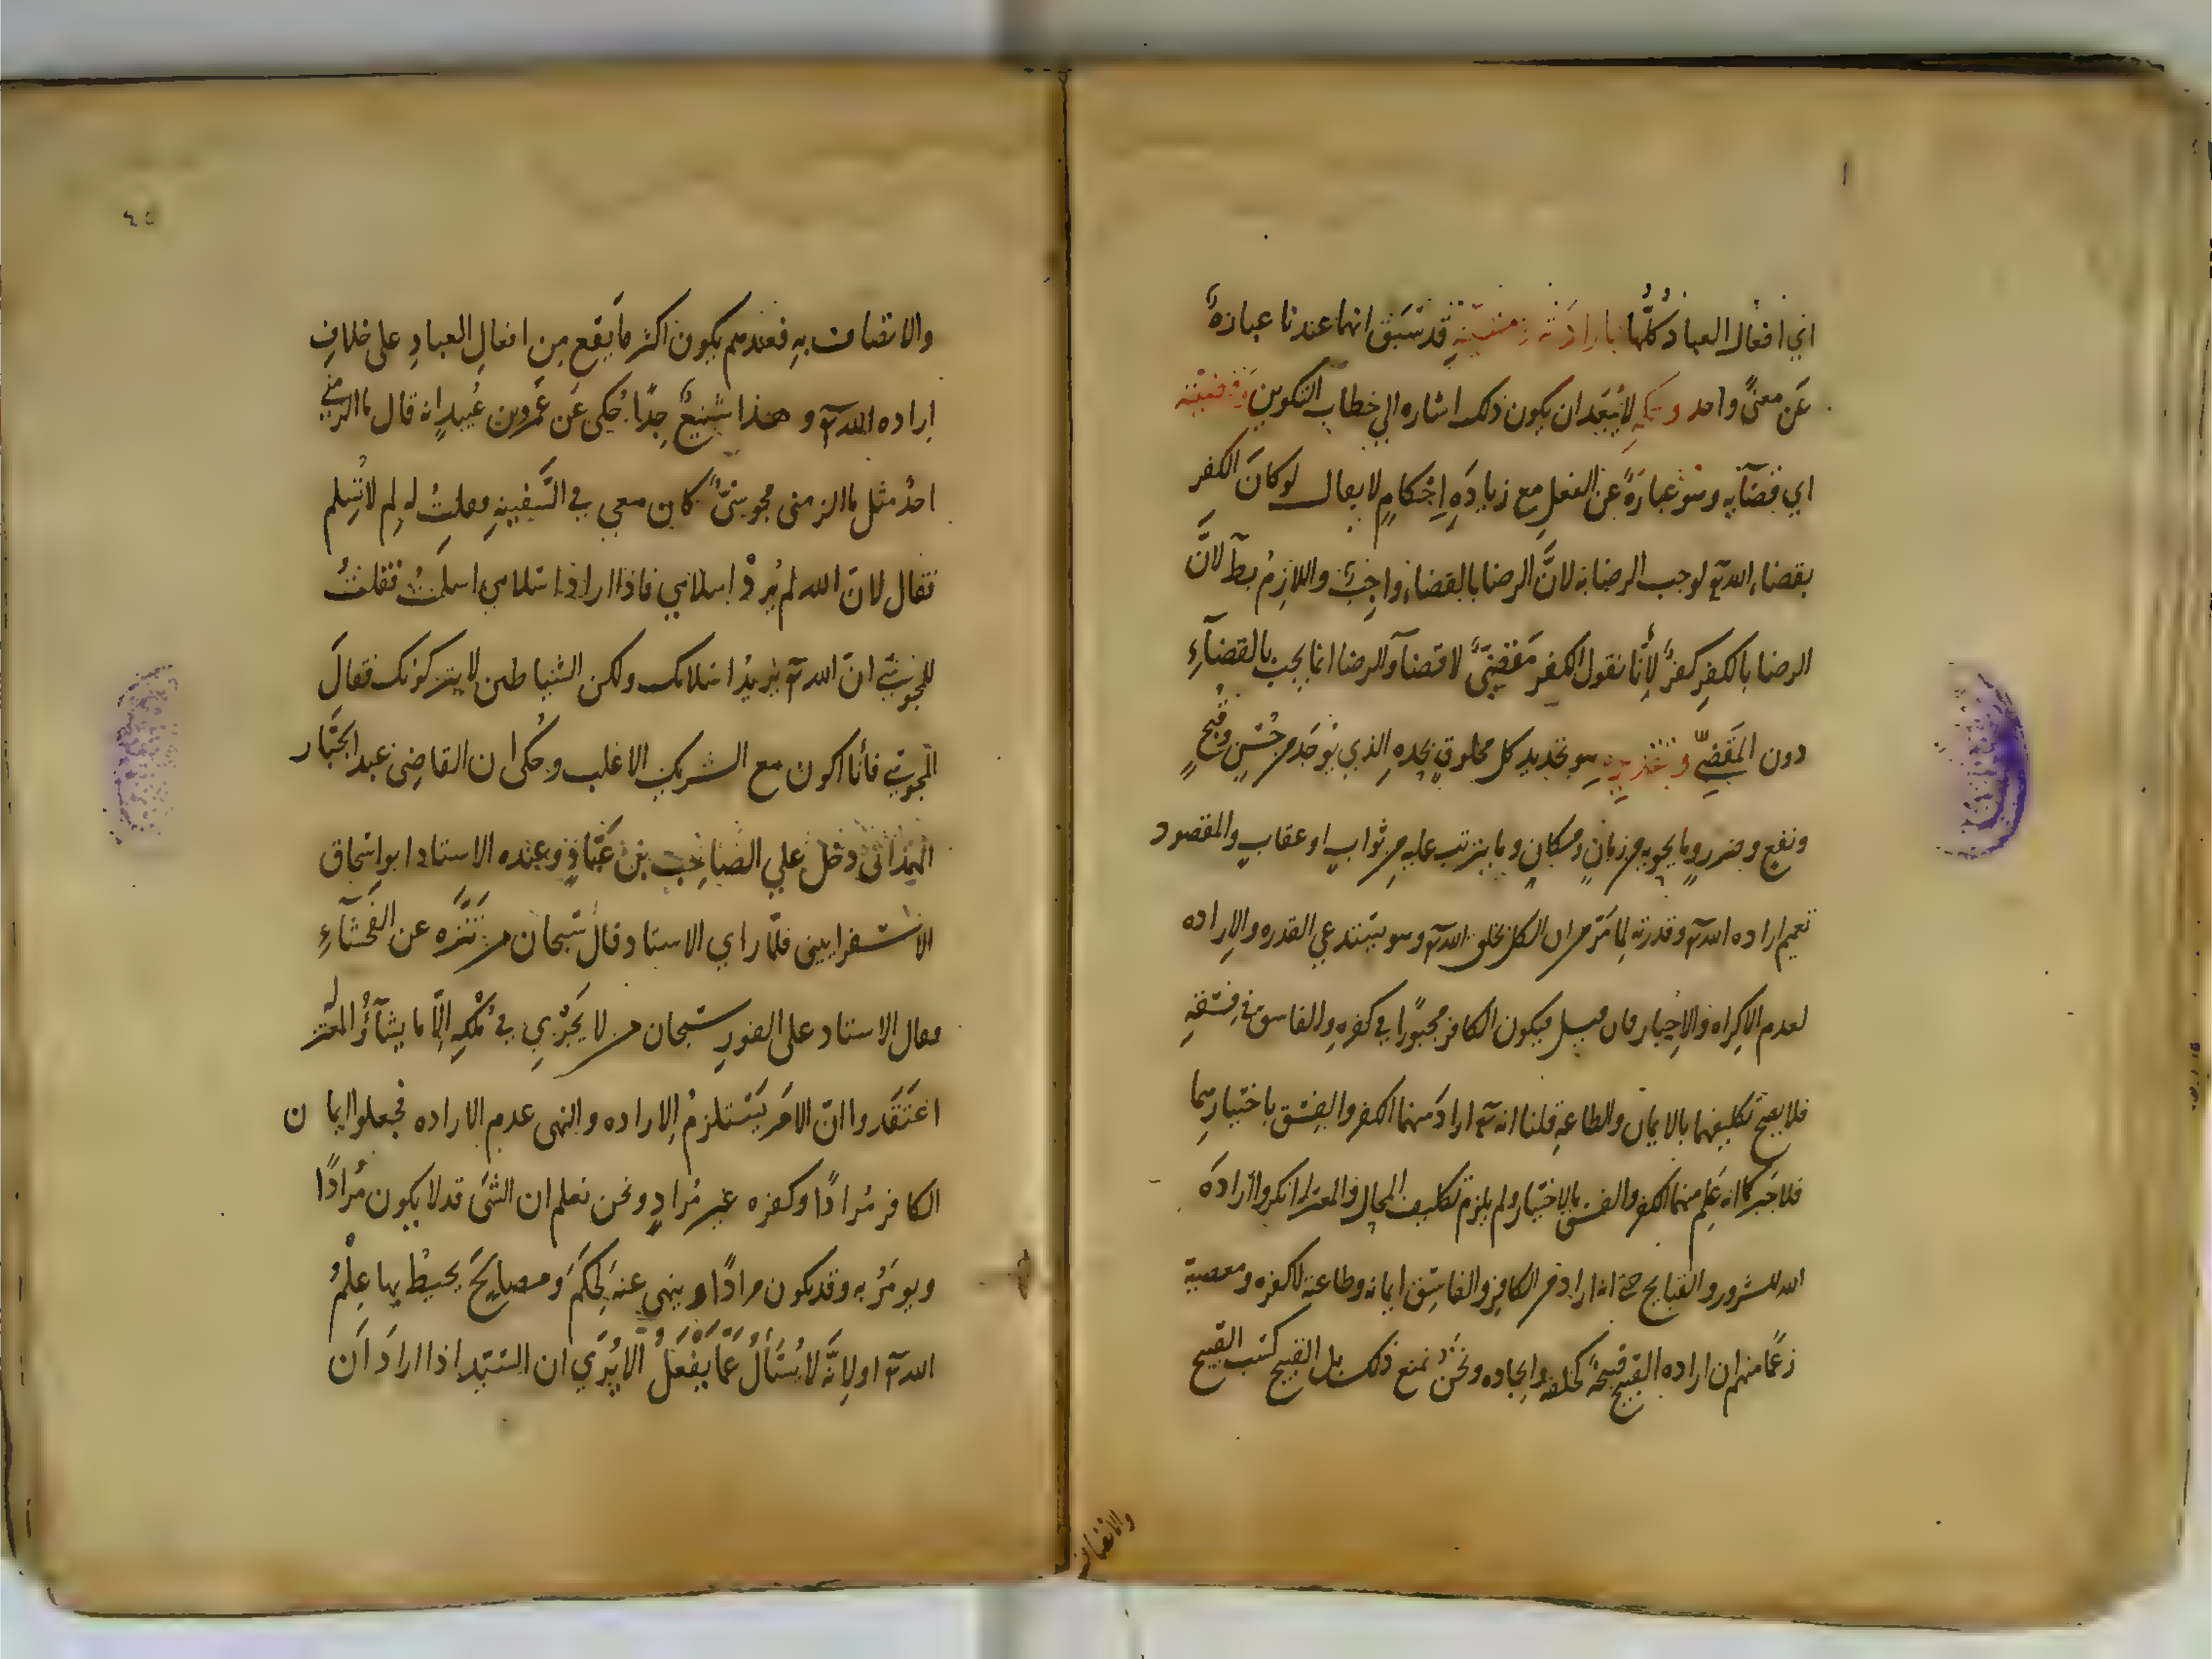 اي افعال العباد كُلُّها بارادته ومشيّته قد سَبَق انهما عندنا عبارةٌ
عَن معنًى واحد وحكمه لا يبعد ان يكون ذلك اشاره الي خطاب التكوين وقضيّته
اي قضآيه وهو عبارةٌ عن الفعل مع زيادَهِ اِحْكامٍ لا يعال لو كانَ الكفر
بقضاء الله تع لوجب الرضا به لانَّ الرضا بالقضاء واجبٌ واللازمُ بط لانَّ
الرضا بالكفرِ كفرٌ لأنا نقول الكفر مَقْضِيٌّ لا قضآ والرضا انما يجب بالقضآءِ
دون المَقضِيِّ وتقديره هو تحديد كل مخلوقٍ بحده الذي يوجَد من حُسْنٍ وقُبحٍ
ونفع وضررٍ وما يحويه من زمانٍ ومكانٍ وما يترتب عليه من ثوابٍ او عقابٍ والمقصود
تعميم اراده الله تع وقدرته لِمَا مَرّ من ان الكل بخلق الله تع وهو يستدعي القدره والاراده
لعدم الاكراه والاِجبار فان قيل فيكون الكافر مجبورًا في كفرِهِ والفاسق في فسقهِ
فلا يصح تكليفهما بالايمان والطاعهِ قلنا انه تع ارادَ منهما الكفر والفسق باختيارهما
فلا جبر كما انه عَلِمَ منهما الكفر والفسق بالاختيار ولم يلزم تكليف المحال والمعتزله انكروا ارادَه
الله للشرور والقبايح حتي انه اراد من الكافرِ والفاسِق ايمانه وطاعته لا كفره ومعصيته
زعمًا منهم ان اراده القبيح قبيحةٌ كخلقه وايجاده ونحن نمنع ذلك بل القبيح كسب القبيح
والاتصاف
٤٥
والاتصاف بهِ فعندهم يكون اكثر ما يَقَع مِن افعالِ العبادِ على خلافِ
اراده الله تع وهذا شنيعٌ جِدًّا حُكى عَن عَمْرو بن عُبيدٍ انه قال ما الزمنى
احدٌ مثل ما الزمنى مجوسيٌّ كان معي في السَّفينهِ فقلتُ له لِم لا تُسِلم
فقال لانّ الله لم يُرِدْ اِسلامي فاذا اراد اسلامي اسلمتُ فقلتُ
للمجوسي انّ الله تع يريدُ اسلامك ولكن الشياطين لا يتركونك فقالَ
المجوسي فأنا اكون مع الشريك الاغلب وحُكى ان القاضِى عبد الجَبّار
الهمدانى دخل علي الصّاحِب بن عَبّادٍ وعنده الاستاد ابو اسحاق
الاسفرايينى فلمّا راي الاستاد قال سُبحان من تَنَزَّه عن الفَحْشآءِ
فعال الاستاد على الفورِ سُبحان من لا يَجْري في مُلْكِهِ اِلّا ما يشآءُ والمعتزله
اعتَقَدوا انّ الامَر يَسْتلزمُ الاراده والنهى عدم الاراده فجعلوا ايمان
الكافر مُرادًا وكفره غير مُرادٍ ونحن نعلم ان الشئَ قد لا يكون مُرادًا
ويومَرُ به وقد يكون مرادًا وينهى عنه لحِكَمَ ومصايِحَ يحيطُ بها عِلْمُ
الله تع او لاِنَّه لا يُسْأَلُ عَمَّا يَفْعَلُ الا يُرَي ان السّيّد اذا ارادَ اَن